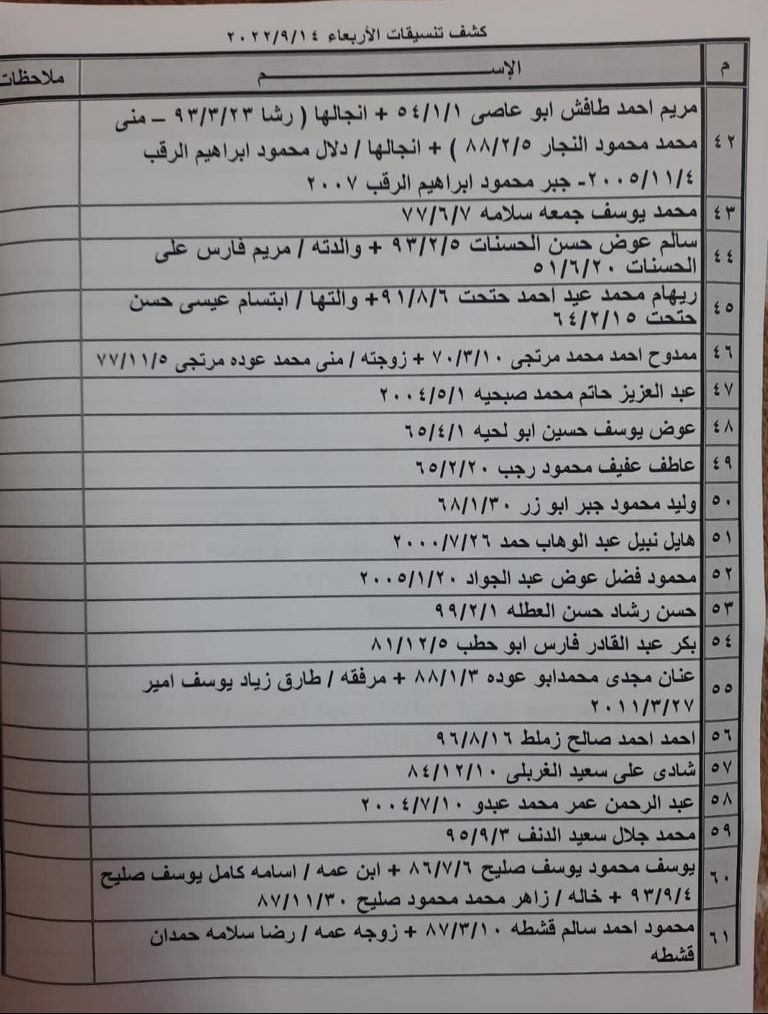 كشف تنسيقات الأربعاء ٢٠٢٢/٩/١٤
م الإســـــــــــــــم ملاحظات
٤٢ مريم احمد طافش ابو عاصى ٥٤/١/١ + انجالها ( رشا ٩٣/٣/٢٣ – منى
محمد محمود النجار ٨٨/٢/٥ ) + انجالها / دلال محمود ابراهيم الرقب
٢٠٠٥/١١/٤- جبر محمود ابراهيم الرقب ٢٠٠٧
٤٣ محمد يوسف جمعه سلامه ٧٧/٦/٧
٤٤ سالم عوض حسن الحسنات ٩٣/٢/٥ + والدته / مريم فارس على
الحسنات ٥١/٦/٢٠
٤٥ ريهام محمد عيد احمد حتحت ٩١/٨/٦+ والتها / ابتسام عيسى حسن
حتحت ٦٤/٢/١٥
٤٦ ممدوح احمد محمد مرتجى ٧٠/٣/١٠ + زوجته / منى محمد عوده مرتجى ٧٧/١١/٥
٤٧ عبد العزيز حاتم محمد صبحيه ٢٠٠٤/٥/١
٤٨ عوض يوسف حسين ابو لحيه ٦٥/٤/١
٤٩ عاطف عفيف محمود رجب ٦٥/٢/٢٠
٥٠ وليد محمود جبر ابو زر ٦٨/١/٣٠
٥١ هايل نبيل عبد الوهاب حمد ٢٠٠٠/٧/٢٦
٥٢ محمود فضل عوض عبد الجواد ٢٠٠٥/١/٢٠
٥٣ حسن رشاد حسن العطله ٩٩/٢/١
٥٤ بكر عبد القادر فارس ابو حطب ٨١/١٢/٥
٥٥ عنان مجدى محمدابو عوده ٨٨/١/٣ + مرفقه / طارق زياد يوسف امير
٢٠١١/٣/٢٧
٥٦ احمد احمد صالح زملط ٩٦/٨/١٦
٥٧ شادى على سعيد الغربلى ٨٤/١٢/١٠
٥٨ عبد الرحمن عمر محمد عبدو ٢٠٠٤/٧/١٠
٥٩ محمد جلال سعيد الدنف ٩٥/٩/٣
٦٠ يوسف محمود يوسف صليح ٨٦/٧/٦ + ابن عمه / اسامه كامل يوسف صليح
٩٣/٩/٤ + خاله / زاهر محمد محمود صليح ٨٧/١١/٣٠
٦١ محمود احمد سالم قشطه ٨٧/٣/١٠ + زوجه عمه / رضا سلامه حمدان
قشطه